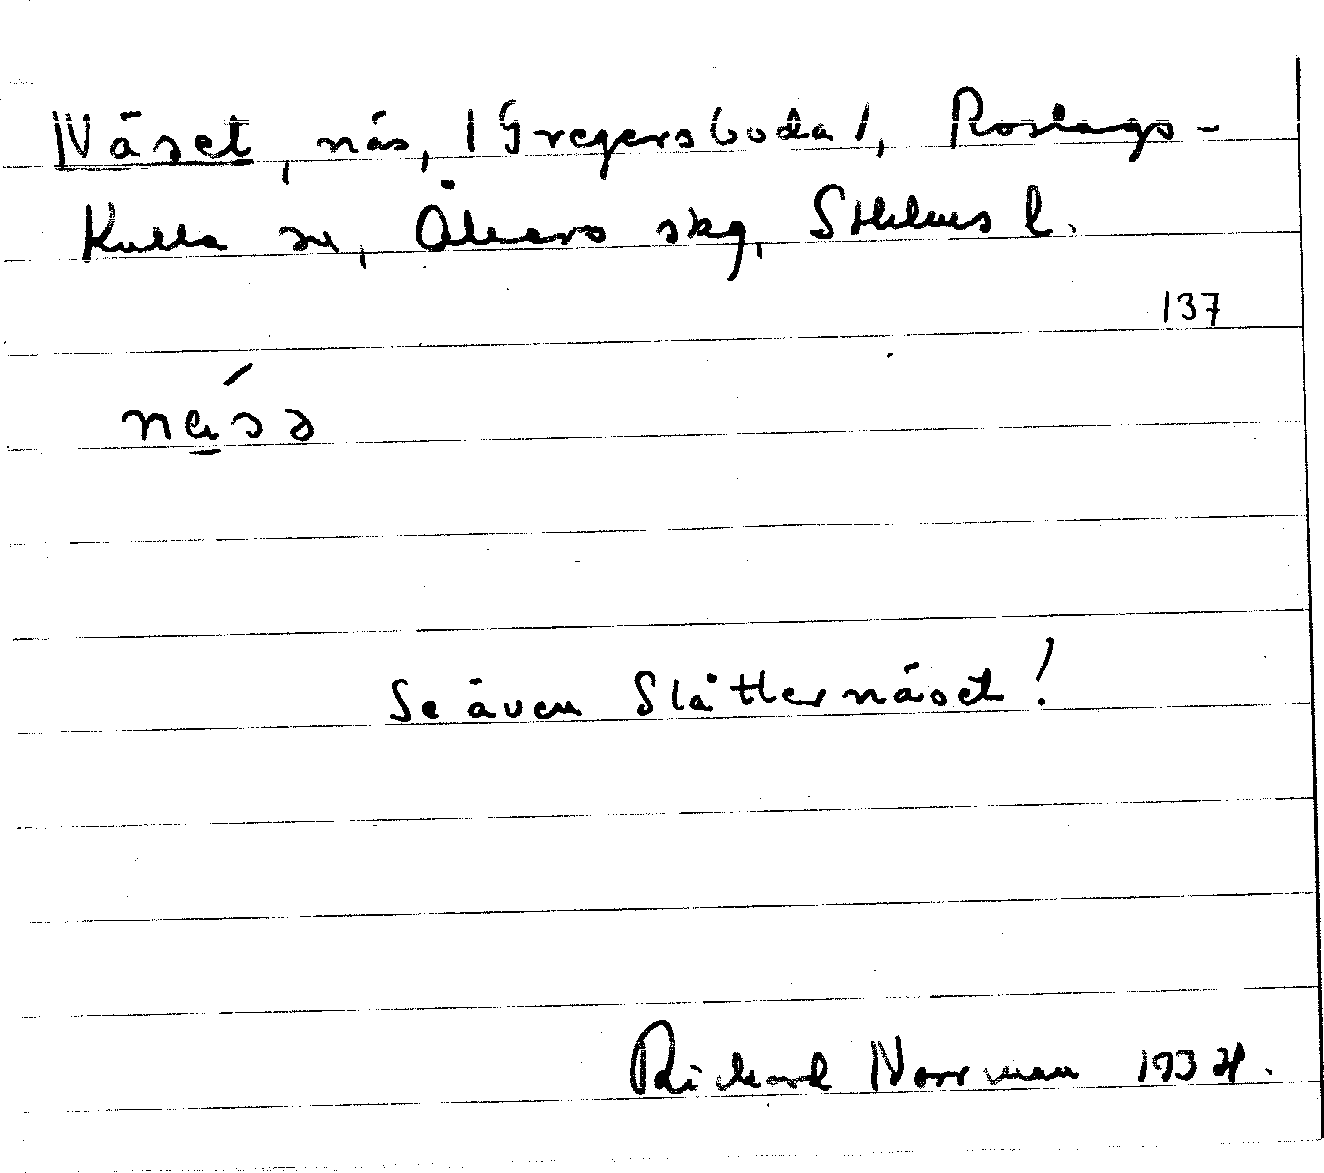 Näset, näs, /Gregersboda/, Roslags-
Kulla sn, Åkers skg, Sthlms l.
137
Se även Slåtternäset!
Richard Norrman 1934.